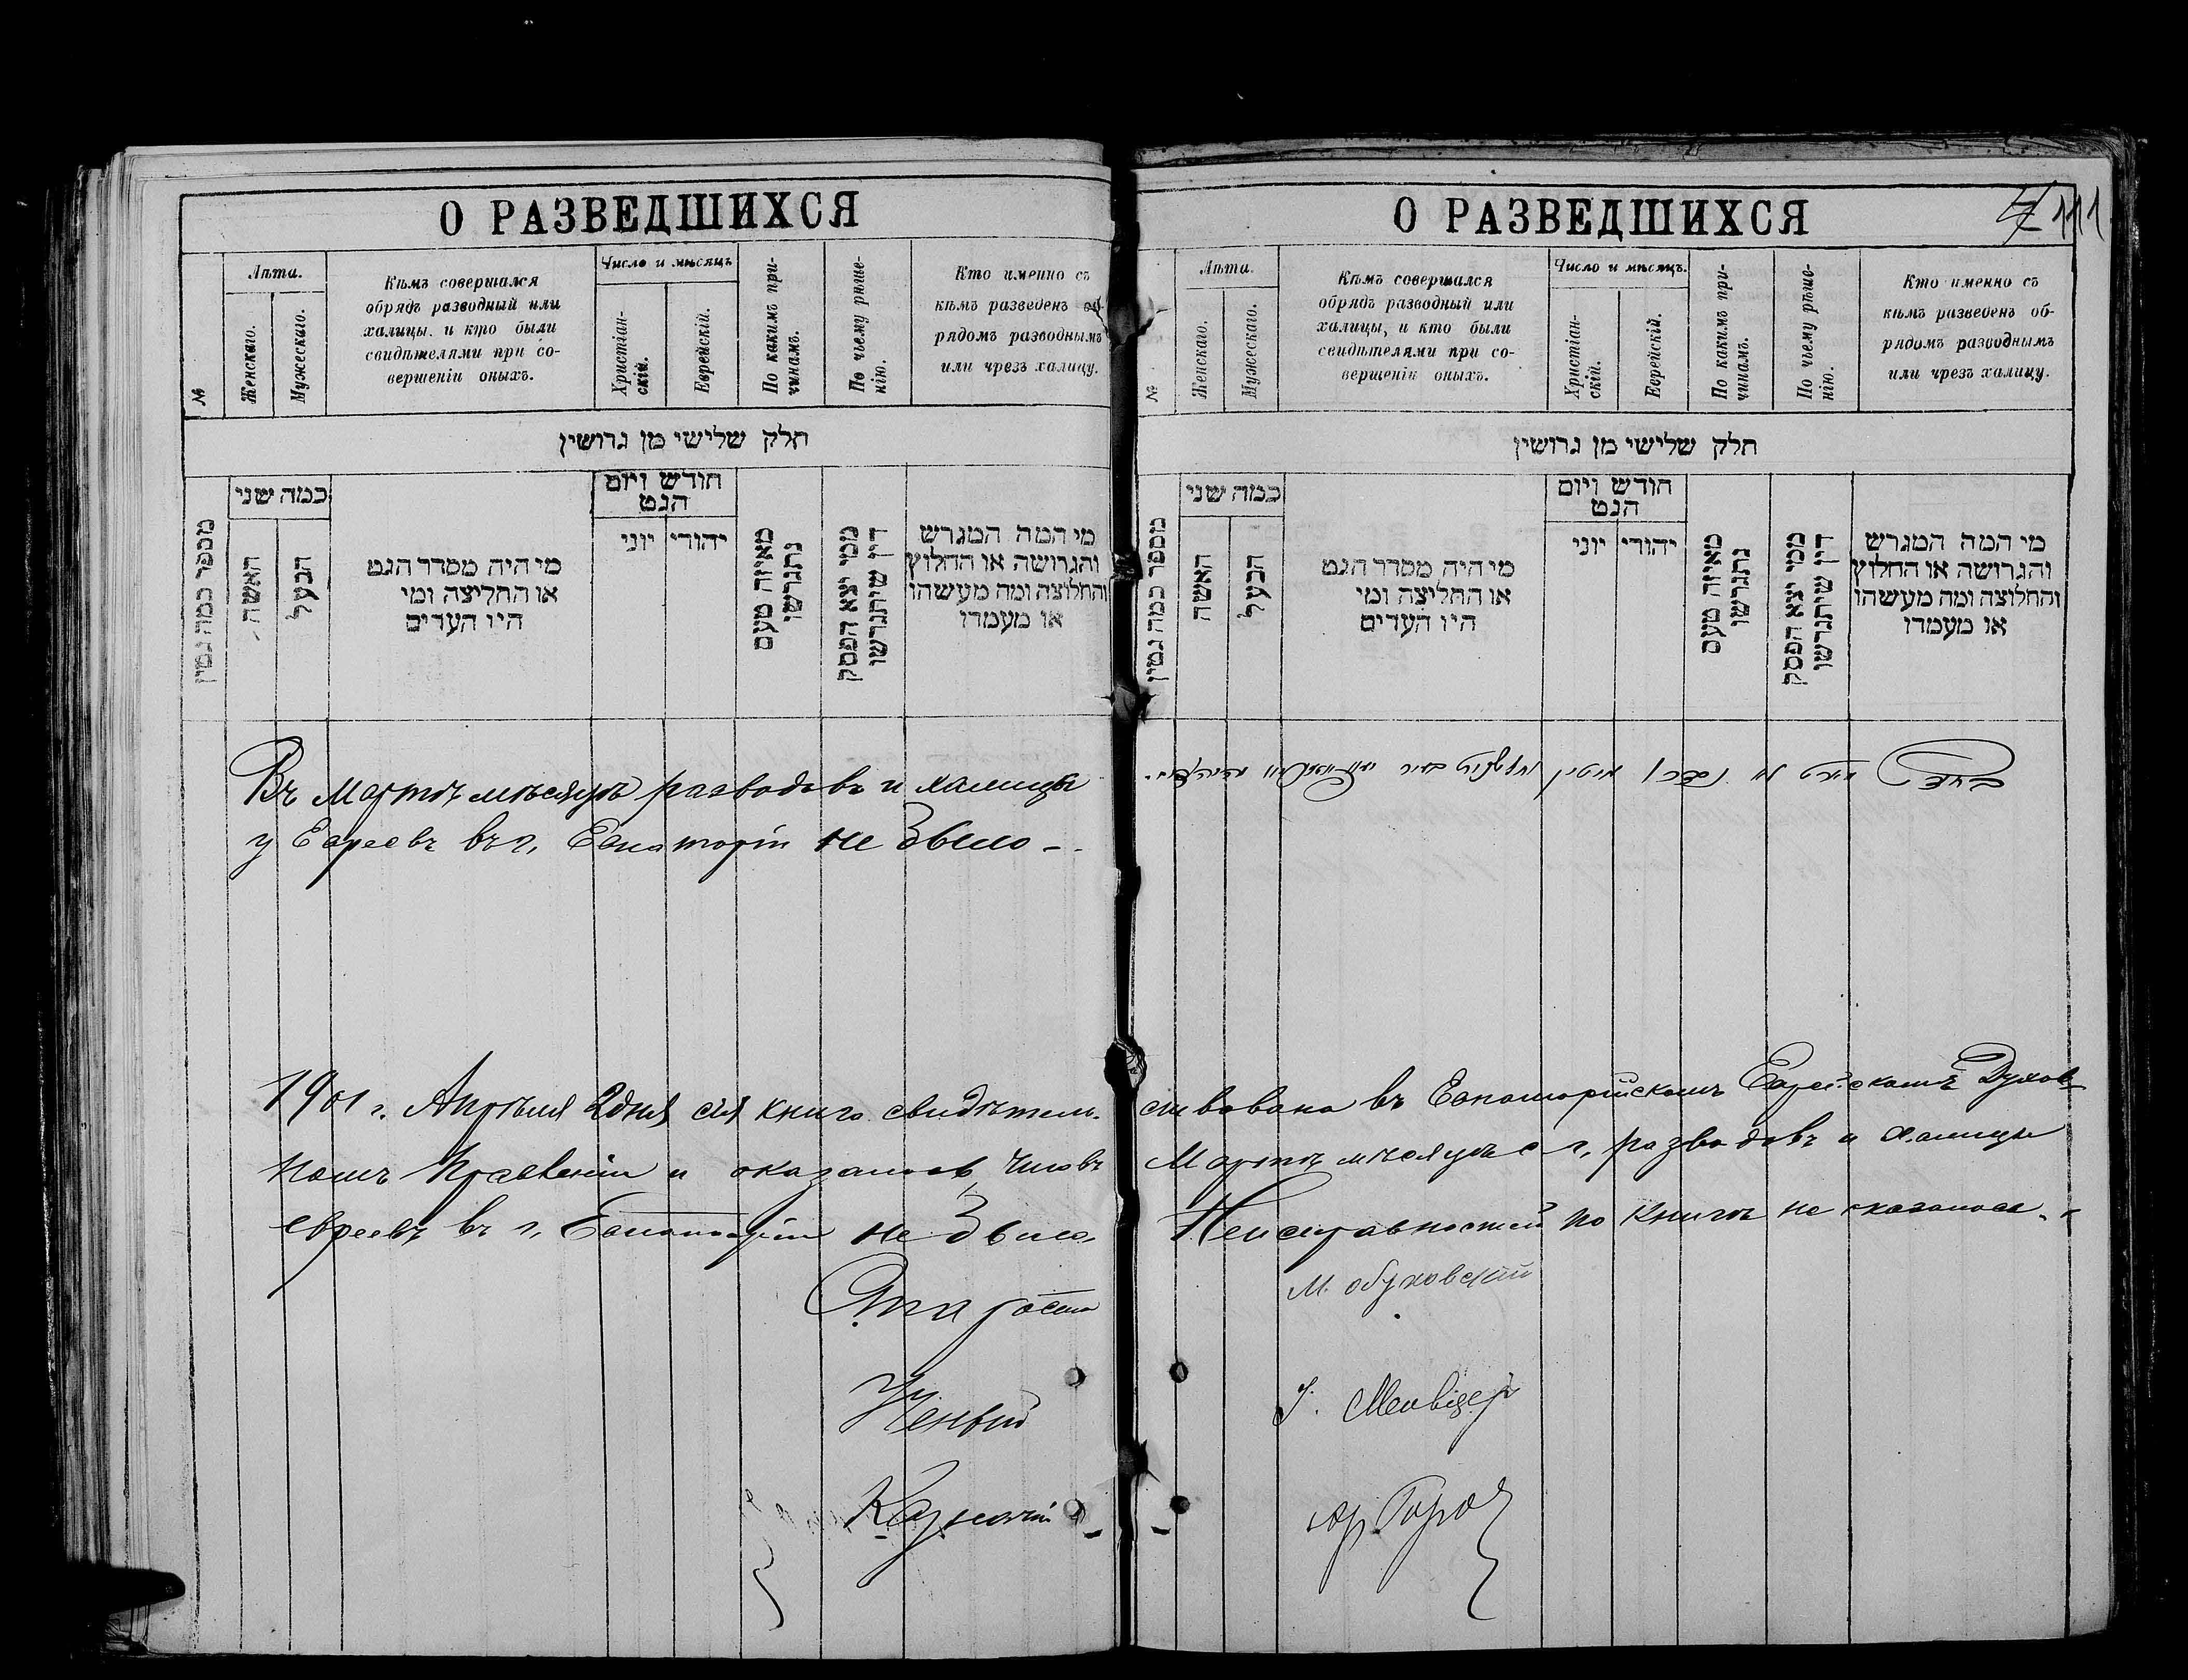 О РАЗВЕДШИХСЯ
№
Лѣта.
Женскаго.
Мужескаго.
Кѣмъ совершался
обрядъ разводный или
халицы. и кто были
свидѣтелями при со-
вершеніи оныхъ.
Число и мѣсяцъ
Христіан-
скій.
Еврейскій.
По какимъ при-
чинамъ.
По чьему рѣше-
нію.
Кто именно съ
кѣмъ разведенъ об-
рядомъ разводнымъ
или чрезъ халицу.
חלק שלישי מן גרושין
מספר כמה גטין
כמה שני
האשה
הבעל
מי היה מסדר הגט
או החליצה ומי
היו העדים
חודש ויום
הגט
יהודי
יוני
מאיזה טעם
נתגרשו
ממי יצא הפסק
דין שיתגרשו
מי המה המגרש
והגרושה או החלוץ
והחלוצה ומה מעשהו
או מעמדו
Въ Мартѣ мѣсяцѣ разводовъ и халицы
у Евреевъ въ г. Евпаторіи не было -
О РАЗВЕДШИХСЯ
111
№
Лѣта.
Женскаго.
Мужескаго.
Кѣмъ совершался
обрядъ разводный или
халицы, и кто были
свидѣтелями при со-
вершеніи оныхъ.
Число и мѣсяцъ.
Христіан-
скій.
Еврейскій.
По какимъ при-
чинамъ.
По чьему рѣше-
нію.
Кто именно съ
кѣмъ разведенъ об-
рядомъ разводнымъ
или чрезъ халицу.
חלק שלישי מן גרושין
מספר כמה גטין
כמה שני
האשה
הבעל
מי היה מסדר הגט
או החליצה ומי
היו העדים
חודש ויום
הגט
יהודי
יוני
מאיזה טעם
נתגרשו
ממי יצא הפסק
דין שיתגרשו
מי המה המגרש
והגרושה או החלוץ
והחלוצה ומה מעשהו
או מעמדו
1901 г. Апрѣля 2 дня сія книга свидѣтель- ствована въ Евпаторійскомъ Еврейскомъ Духов-
номъ Правленіи и оказалось, что въ Мартѣ мѣсяцѣ с г. разводовъ и халицы
евреевъ въ г. Евпаторіи не было. Неисправностей по книгѣ не оказалось.
М. Обуховскій
Ученый
Казначей